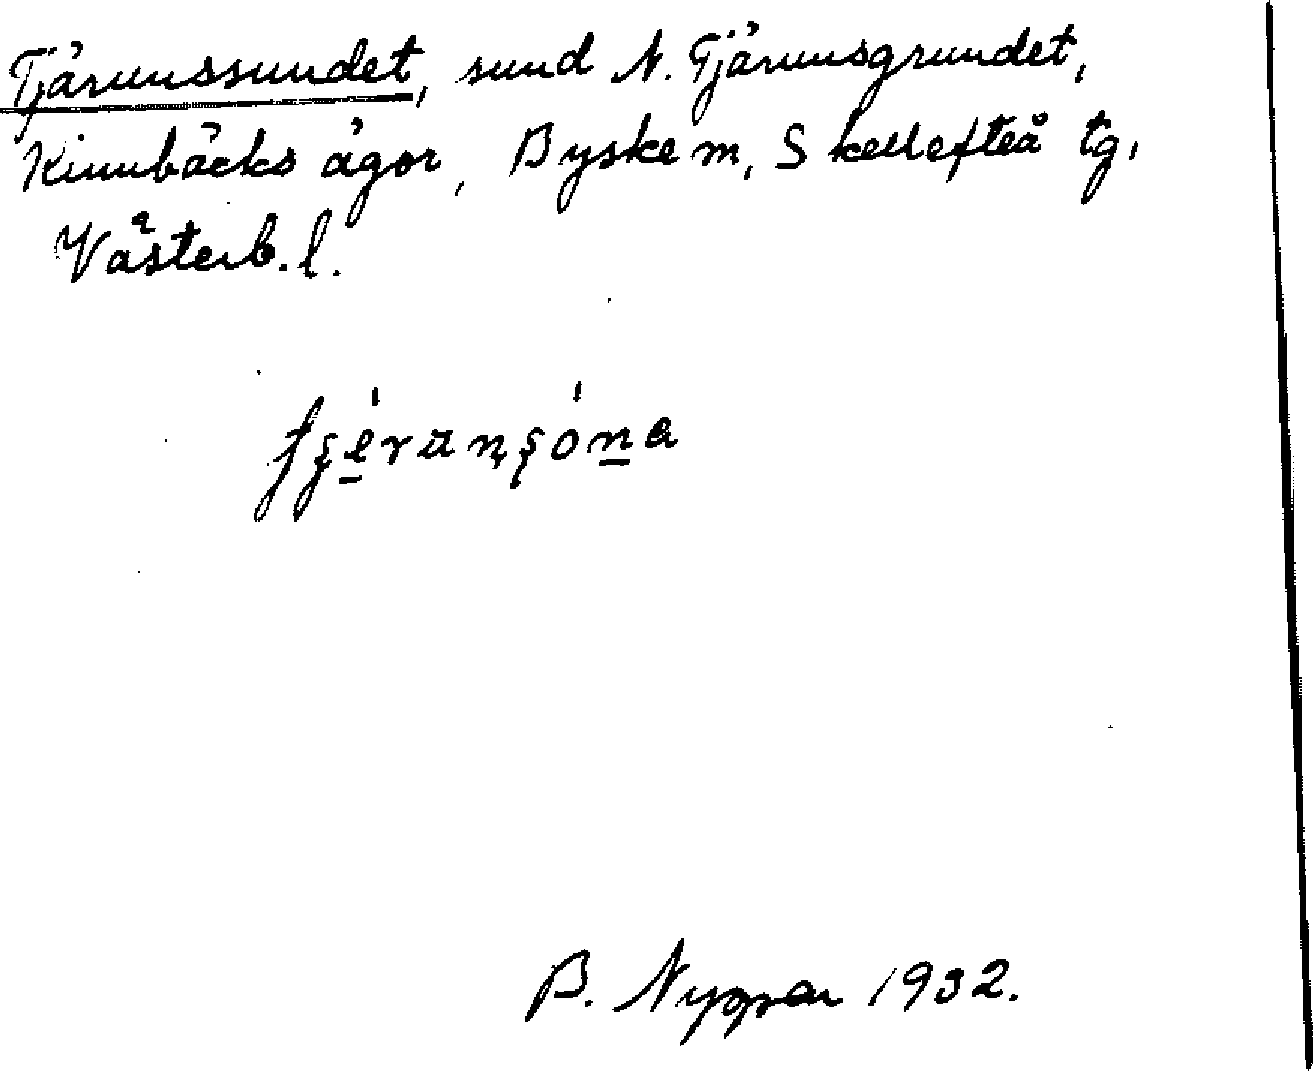 Tjärunssundet, sund N. Tjärunsgrundet,
Kinnbäcks ägor, Byske m, Skellefteå tg,
Västerb. l.
B. Nyman 1932.